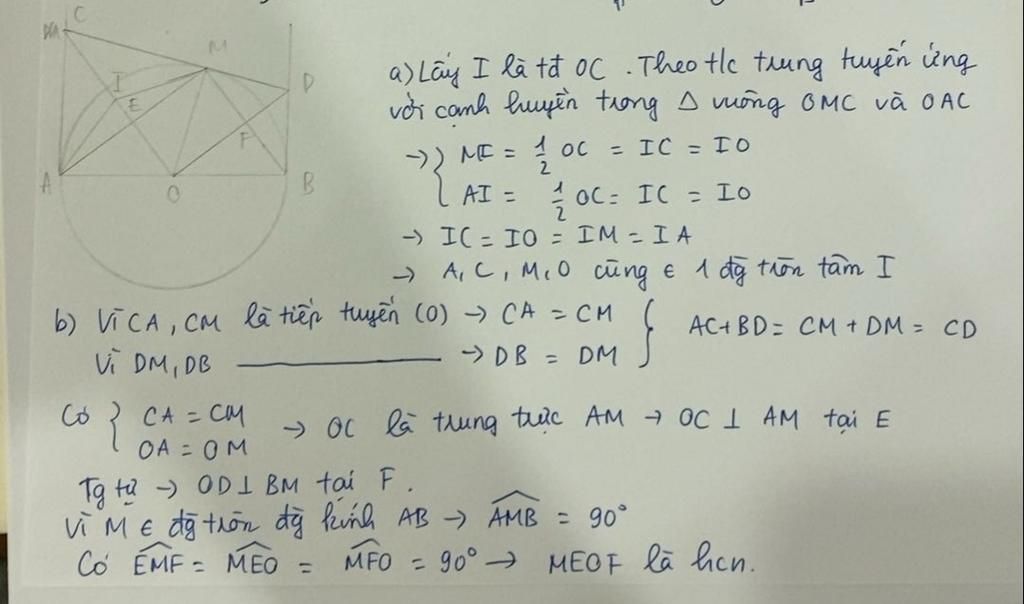 C
M
I
E
D
F
A
O
B
a) Lấy I là tđ OC. Theo t/c trung tuyến ứng
với cạnh huyền trong △ vuông OMC và OAC
→ { MI = 1/2 OC = IC = IO
AI = 1/2 OC = IC = IO
→ IC = IO = IM = IA
→ A, C, M, O cùng ∈ 1 đg tròn tâm I
b) Vì CA, CM là tiếp tuyến (O) → CA = CM } AC + BD = CM + DM = CD
Vì DM, DB ———— → DB = DM
Có { CA = CM
OA = OM → OC là trung trực AM → OC ⊥ AM tại E
Tg tự → OD ⊥ BM tại F.
Vì M ∈ đg tròn đg kính AB → \widehat{AMB} = 90°
Có \widehat{EMF} = \widehat{MEO} = \widehat{MFO} = 90° → MEOF là hcn.